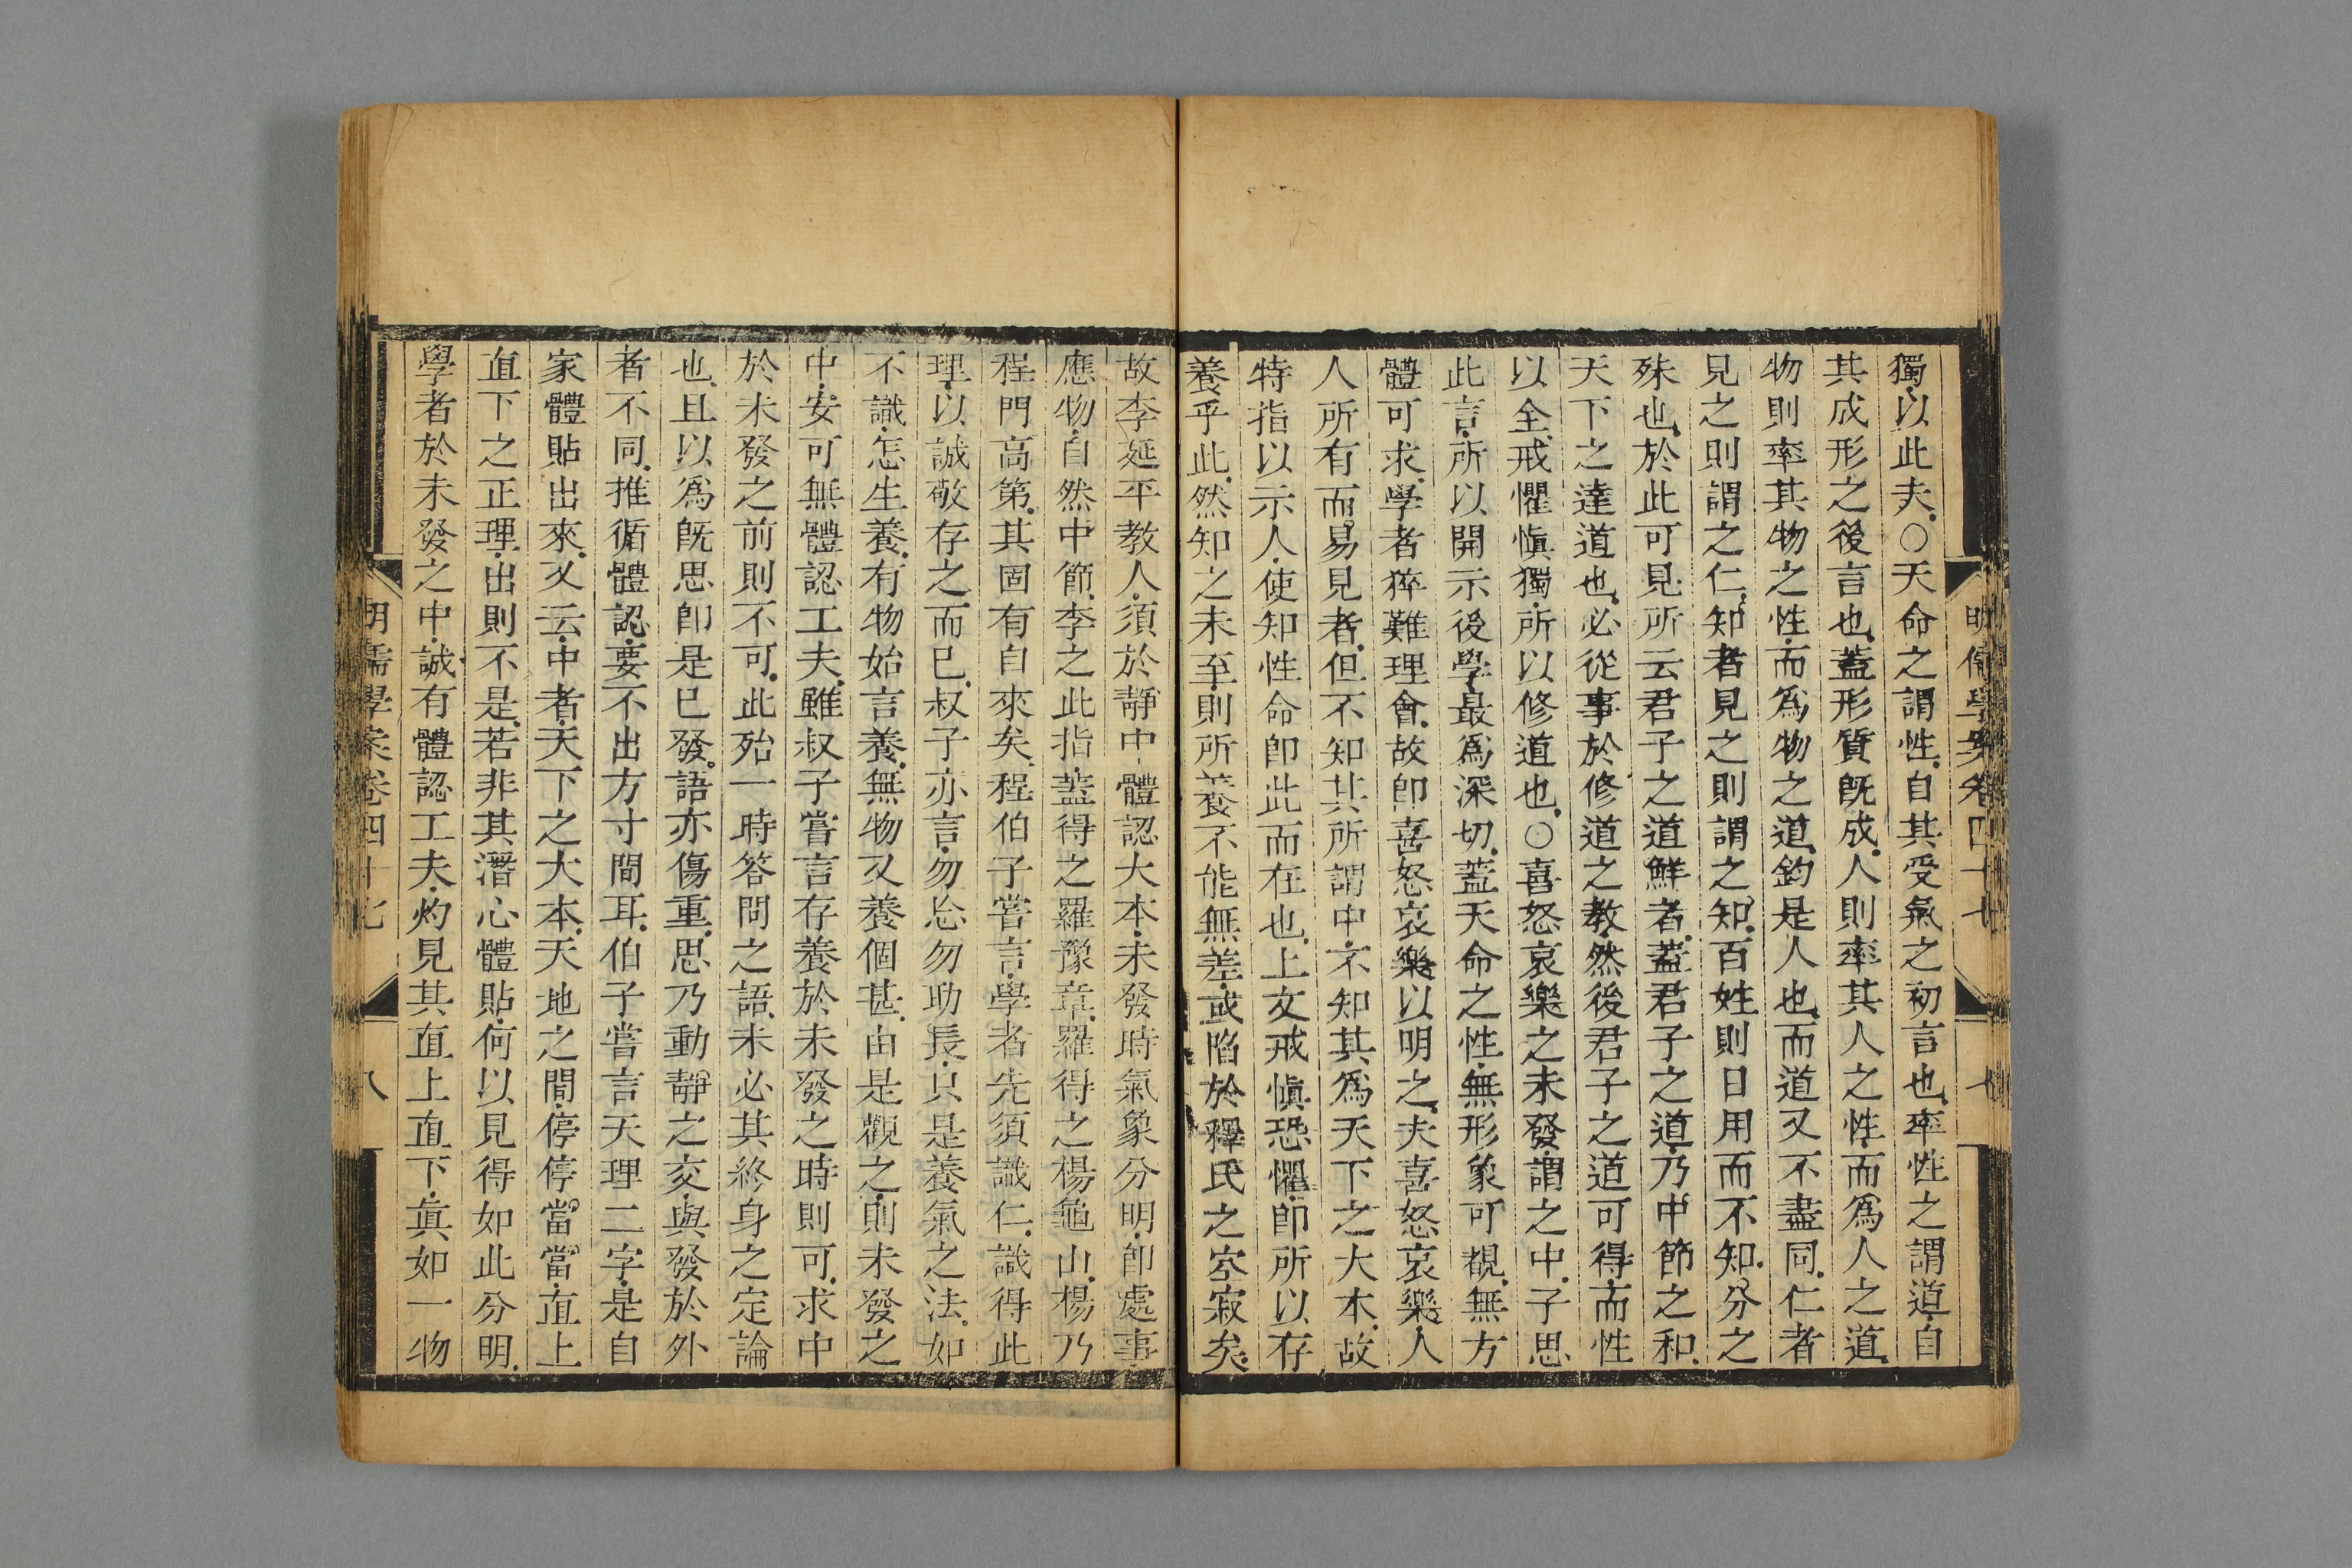 明儒學案卷四十七
七
獨以此夫○天命之謂性自其受氣之初言也率性之謂道自
其成形之後言也蓋形質旣成人則率其人之性而爲人之道
物則率其物之性而爲物之道鈞是人也而道又不盡同仁者
見之則謂之仁知者見之則謂之知百姓則日用而不知分之
殊也於此可見所云君子之道鮮者蓋君子之道乃中節之和
天下之達道也必從事於修道之教然後君子之道可得而性
以全戒懼愼獨所以修道也○喜怒哀樂之未發謂之中子思
此言所以開示後學最爲深切蓋天命之性無形象可覩無方
體可求學者猝難理會故卽喜怒哀樂以明之夫喜怒哀樂人
人所有而易見者但不知其所謂中不知其爲天下之大本故
特指以示人使知性命卽此而在也上文戒愼恐懼卽所以存
養乎此然知之未至則所養不能無差或陷於釋氏之空寂矣
故李延平教人須於靜中體認大本未發時氣象分明卽處事
應物自然中節李之此指蓋得之羅豫章羅得之楊龜山楊乃
程門高第其固有自來矣程伯子嘗言學者先須識仁識得此
理以誠敬存之而已叔子亦言勿忘勿助長只是養氣之法如
不識怎生養有物始言養無物又養個甚由是觀之則未發之
中安可無體認工夫雖叔子嘗言存養於未發之時則可求中
於未發之前則不可此殆一時答問之語未必其終身之定論
也且以爲旣思卽是已發語亦傷重思乃動靜之交與發於外
者不同推循體認要不出方寸間耳伯子嘗言天理二字是自
家體貼出來又云中者天下之大本天地之間停停當當直上
直下之正理出則不是若非其潛心體貼何以見得如此分明
學者於未發之中誠有體認工夫灼見其直上直下真如一物
明儒學案卷四十七
八